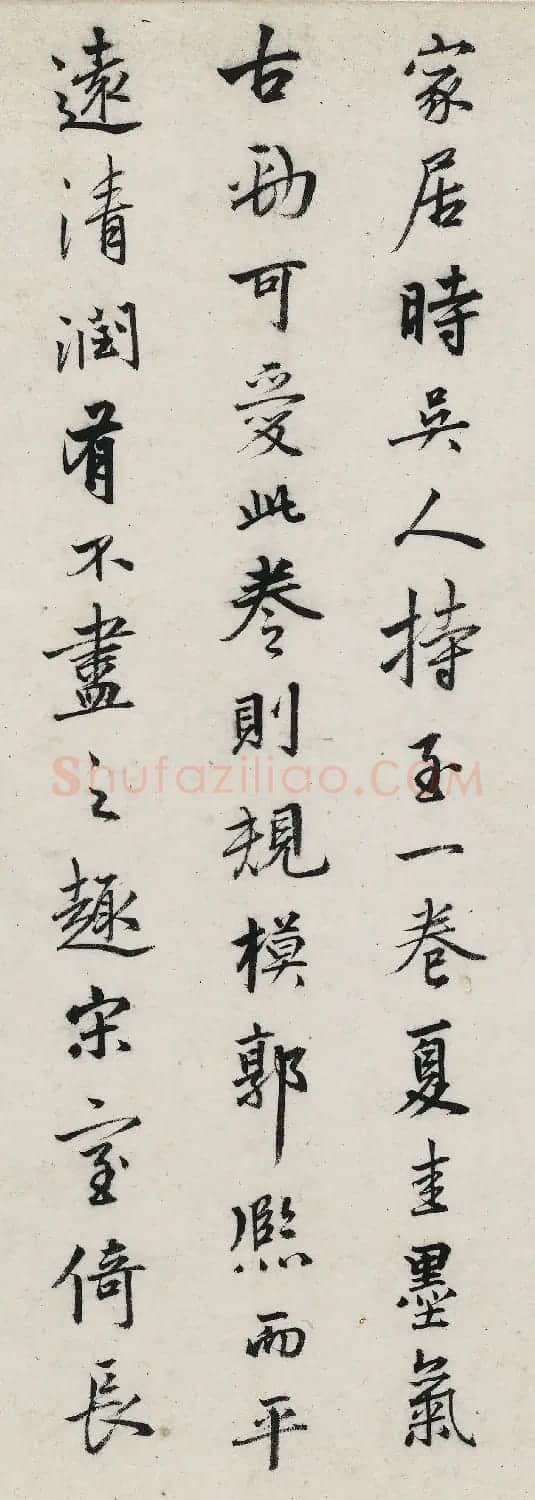 家居時吳人持至一卷夏圭墨氣
古勁可愛此卷則規模郭熙而平
遠清潤有不盡之趣宋室倚長
Shufaziliao.COM